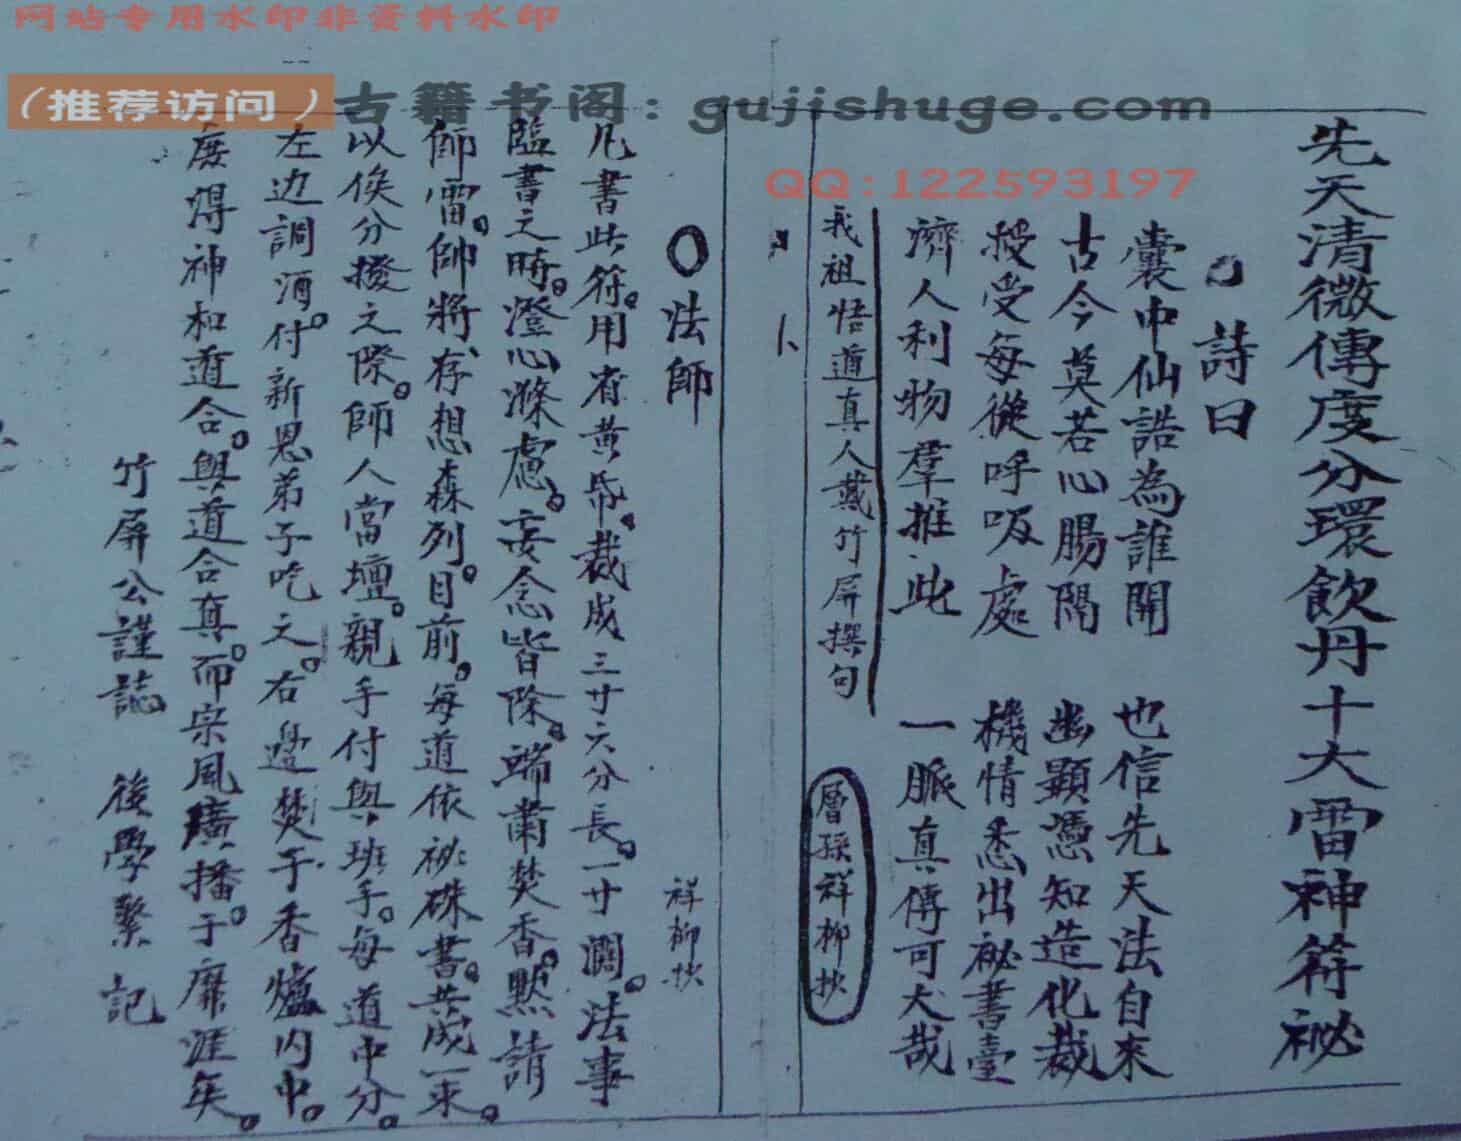 网站专用水印非资料水印
（推荐访问）古籍书阁：gujishuge.com
QQ:122593197
先天清微傳度分環飲丹十大雷神符祕
詩曰
囊中仙誥為誰開 也信先天法自來
古今莫若心腸隔 幽顯憑知造化裁
授受每從呼吸處 機情悉出祕書臺
濟人利物羣推此 一脈真傳可大哉
我祖悟道真人戴竹屏撰句 層孫祥柳抄
卜
法師 祥柳抄
凡書此符。用省黃帋。裁成三寸六分長。一寸濶。法事
臨書之時。澄心滌慮。妄念皆除。端肅焚香。默請
師雷。帥將存想森列。目前。每道依祕硃書。共成一束。
以俟分撥之際。師人當壇。親手付與班手。每道中分。
左边調酒。付新恩弟子吃之。右邊焚于香爐内中。
庶得神和道合。與道合真。而宗風廣播。于靡涯矣。
竹屏公謹誌 後學繫記